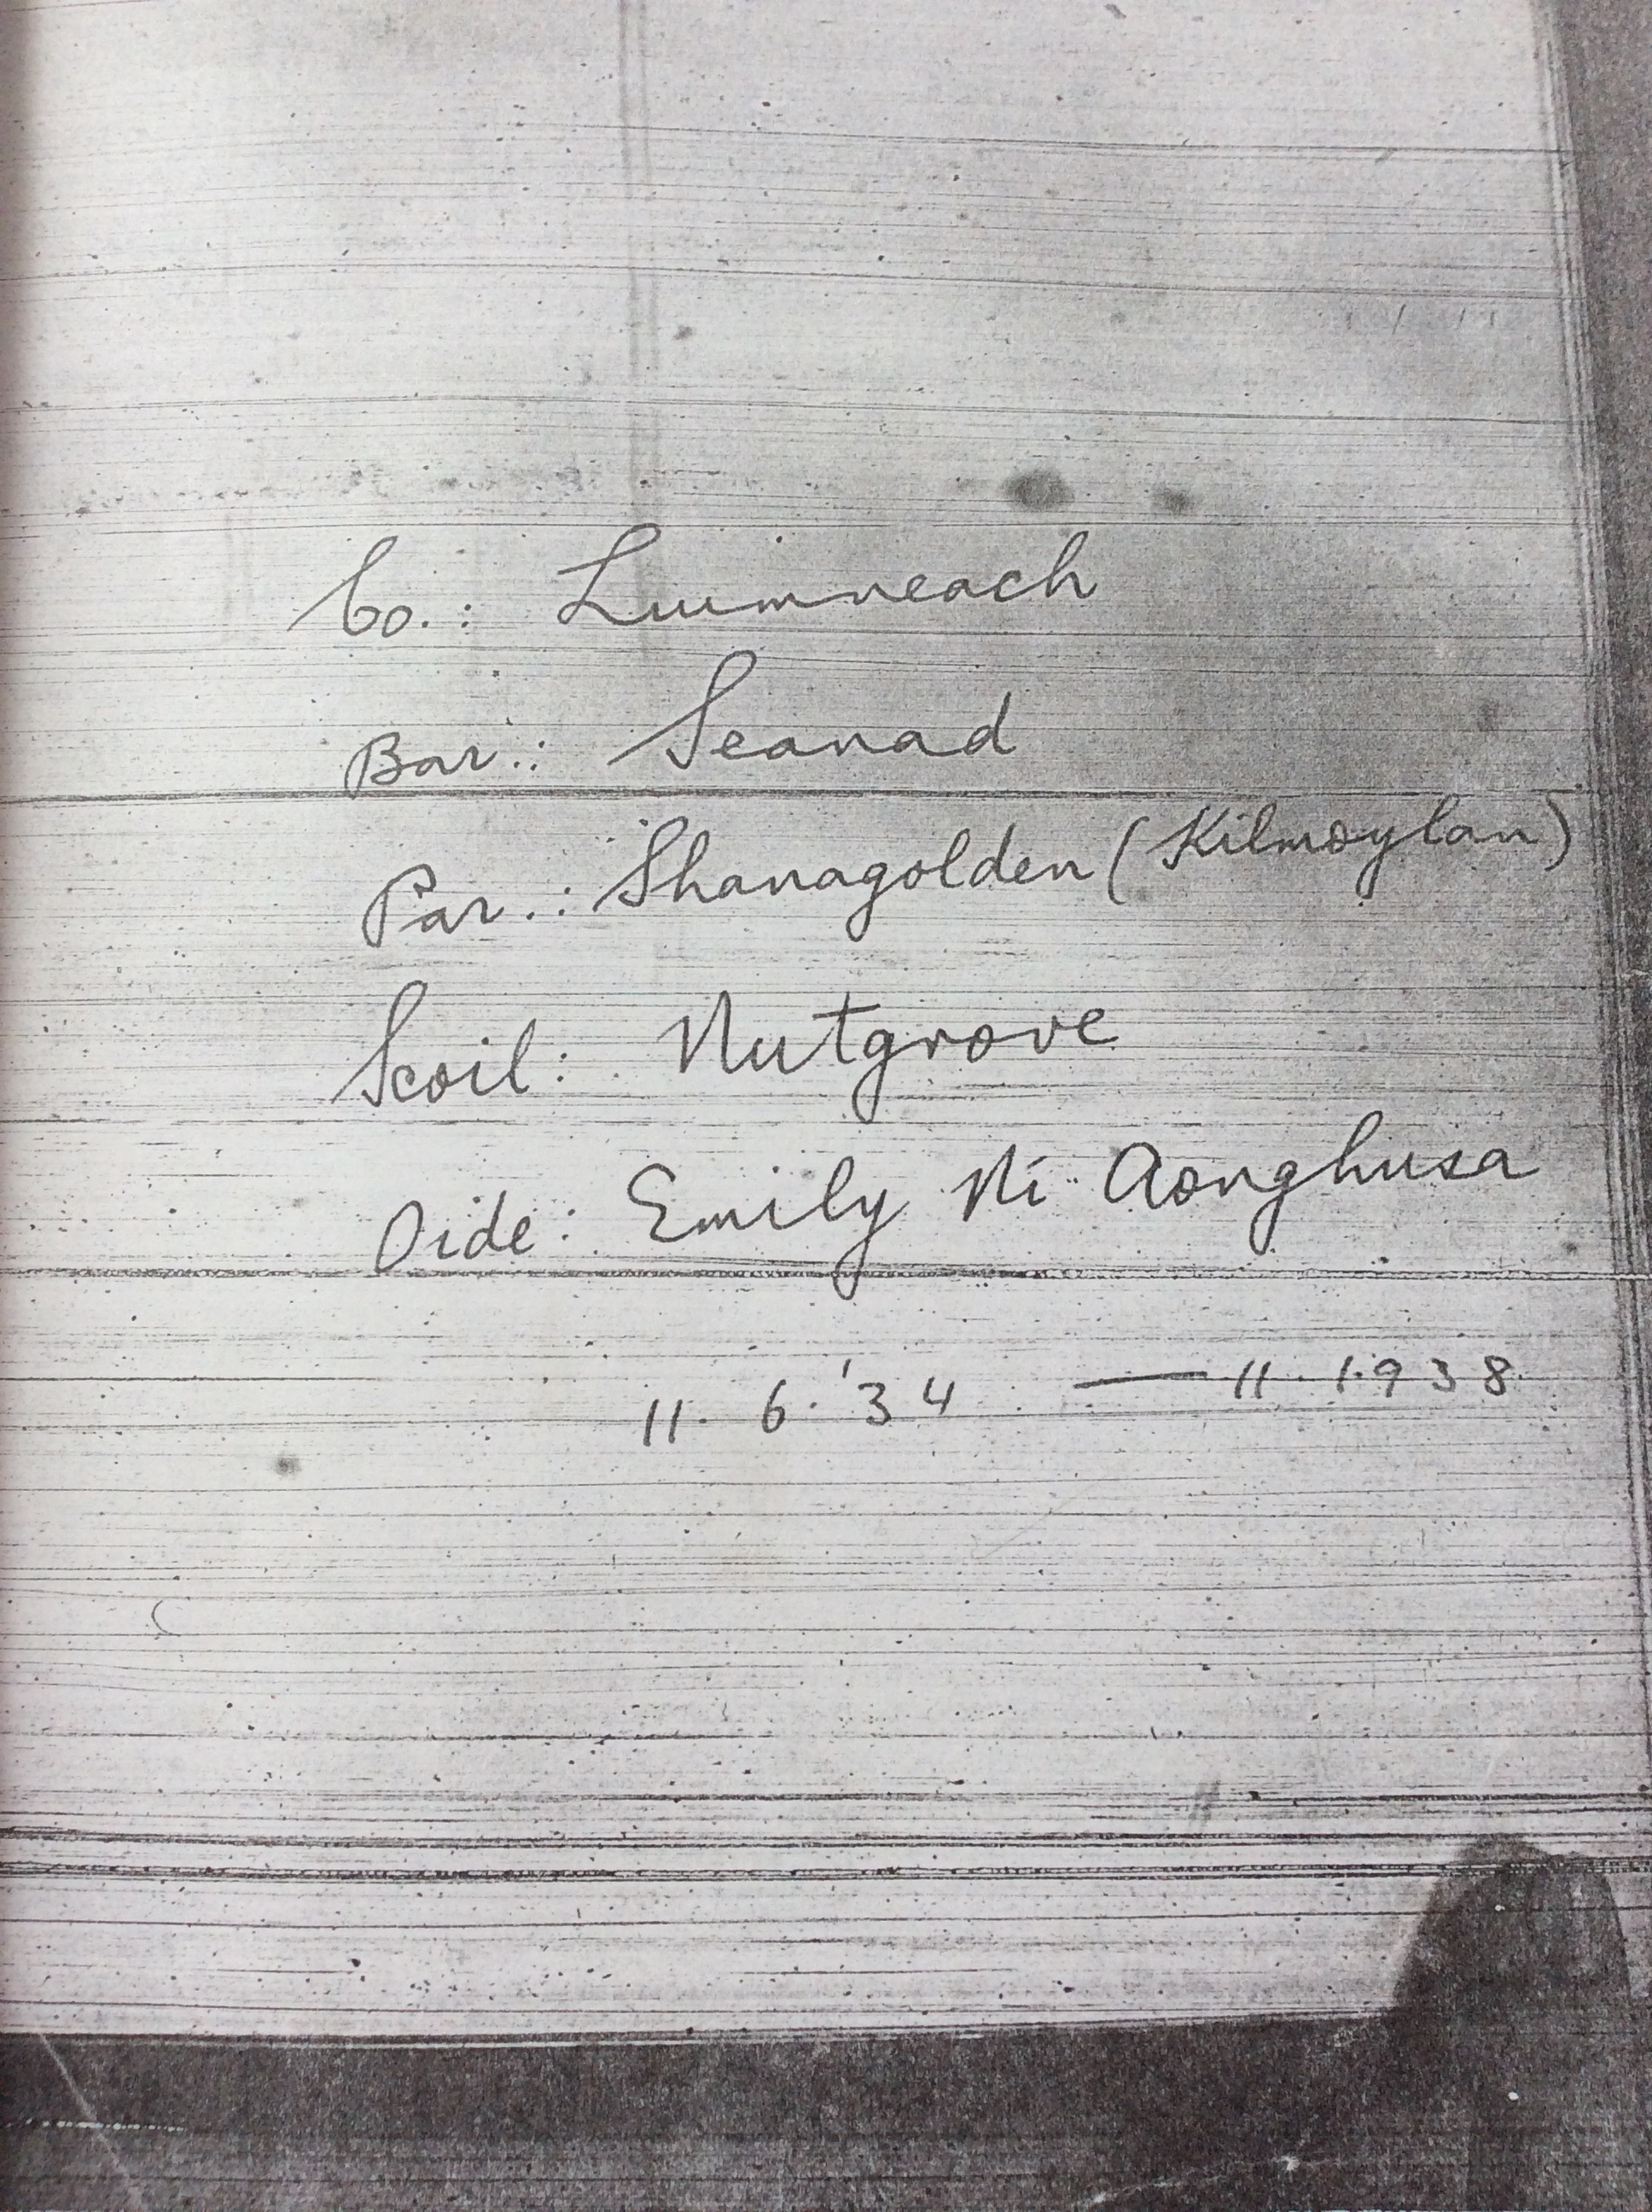 Co.: Luimneach
Bar.: Seanad
Par.: Shanagolden (Kilmoylan)
Scoil: Nutgrove
Oide: Emily Ní Aonghusa
11. 6. '34 — 11. 1938.